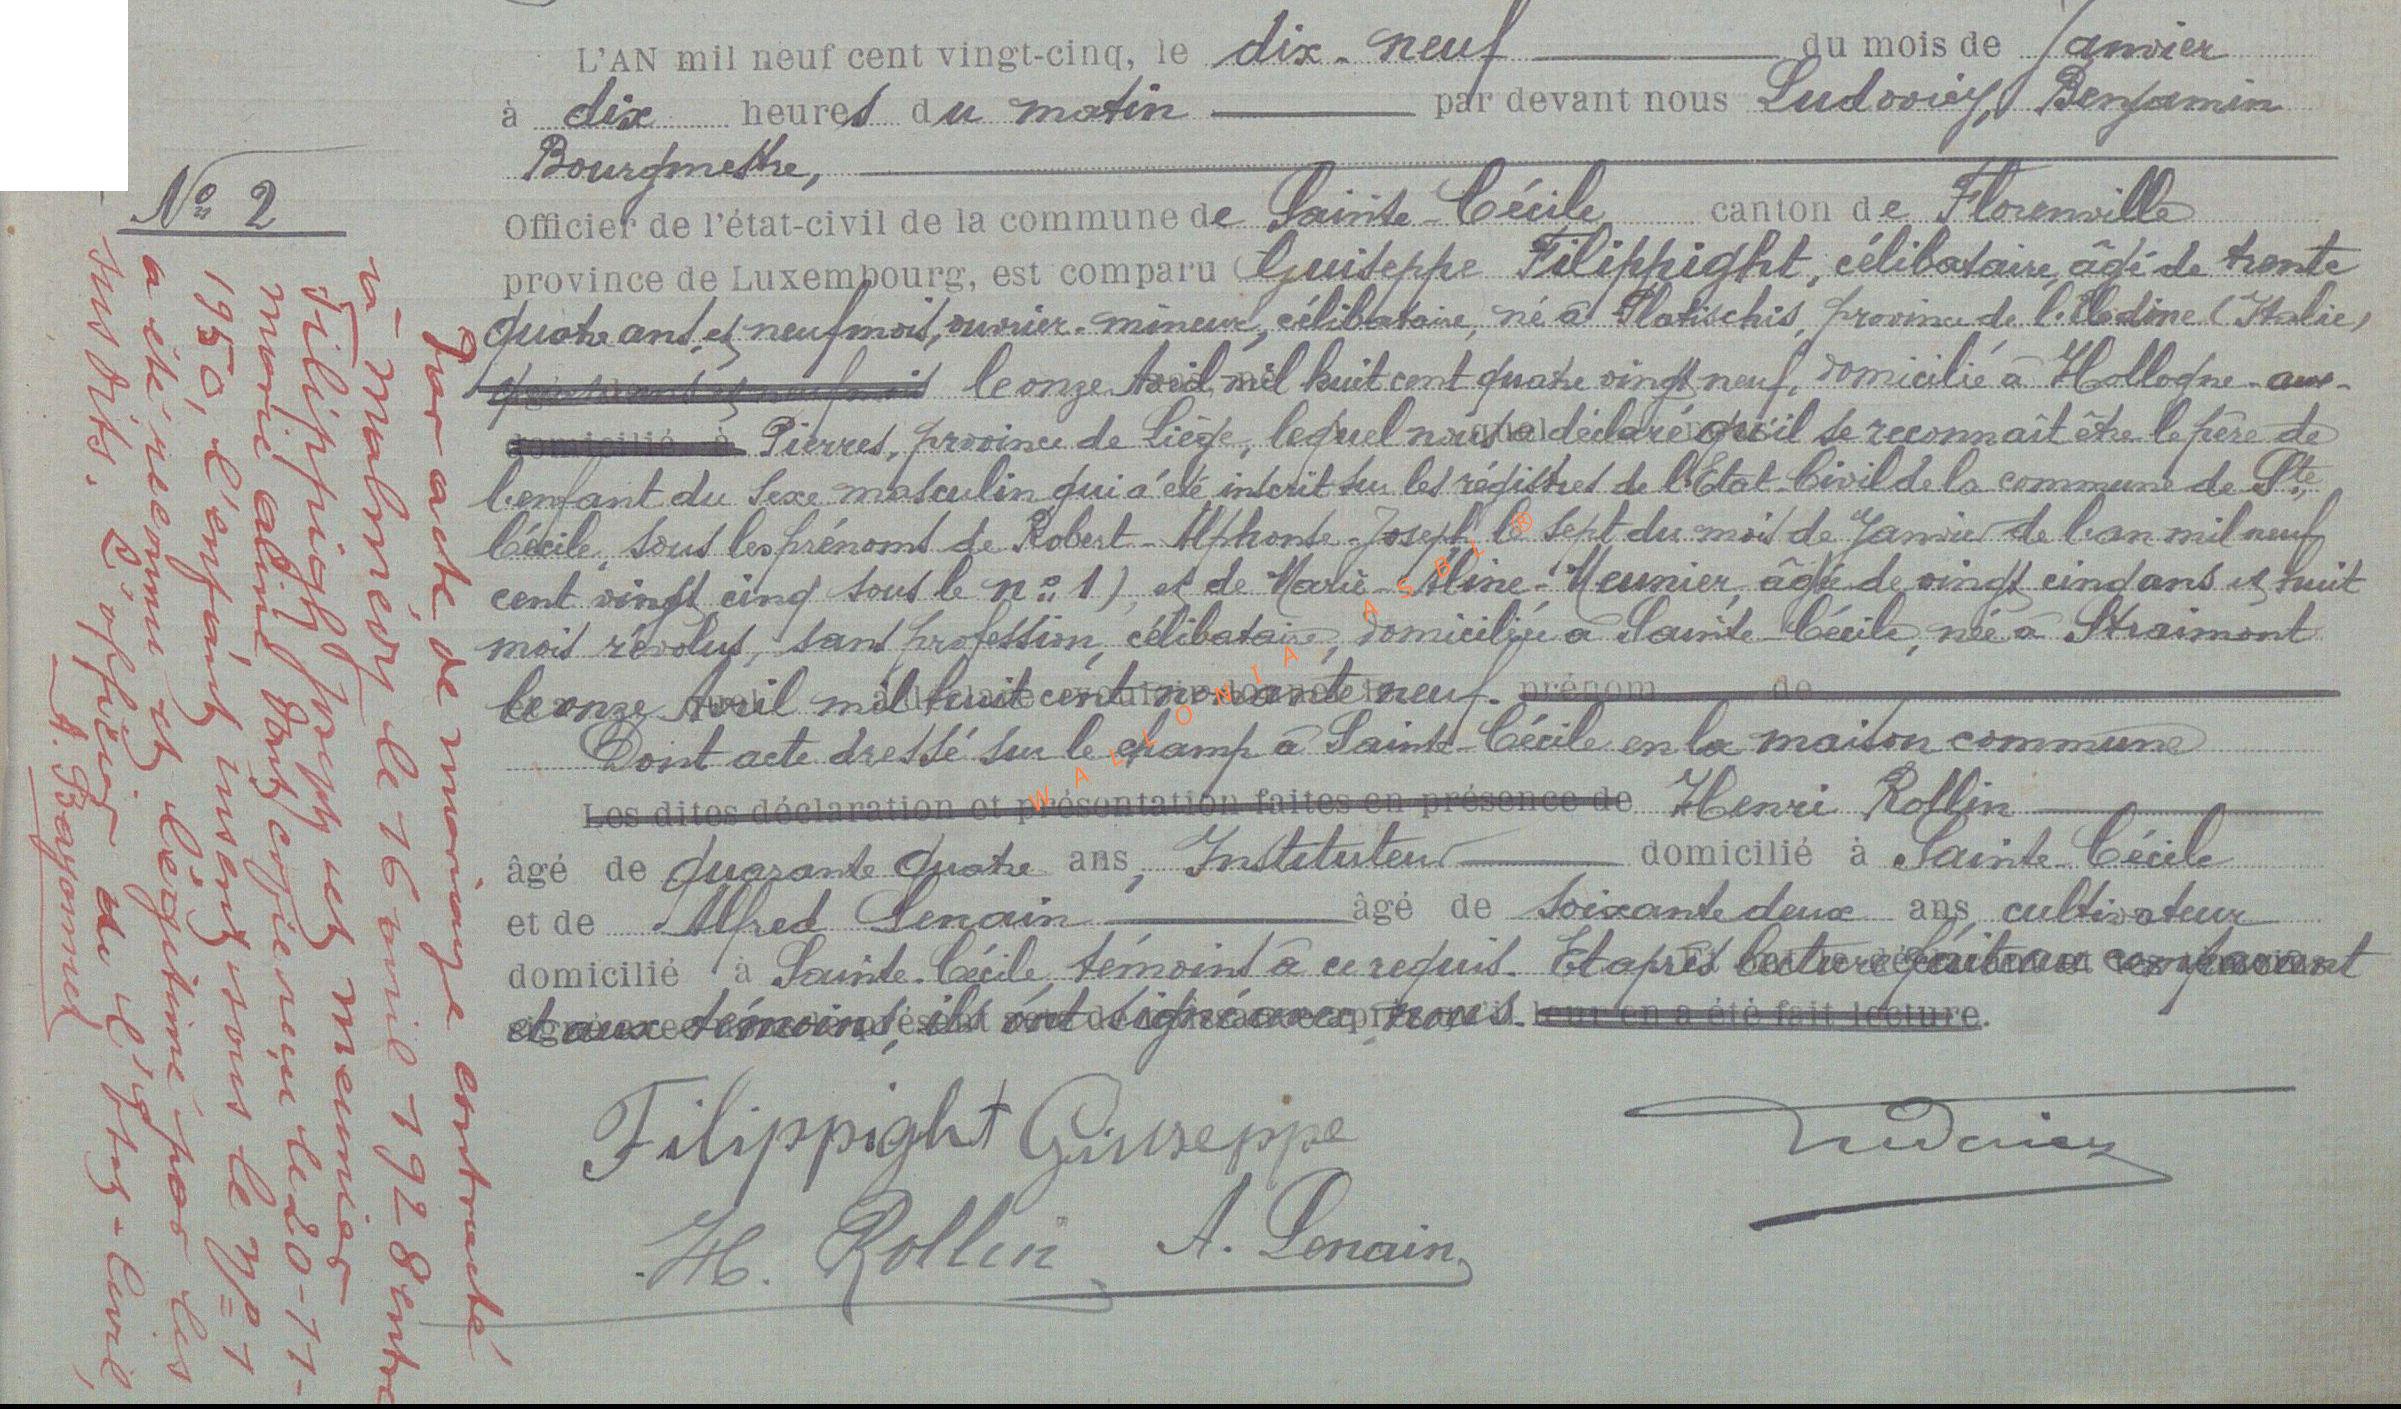 L'AN mil neuf cent vingt-cinq, le dix-neuf du mois de Janvier
à dix heures du matin par devant nous Ludovicy, Benjamin
Bourgmestre,
Officier de l'état-civil de la commune de Sainte-Cécile canton de Florenville
province de Luxembourg, est comparu Guiseppe Filippight, célibataire, âgé de trente
quatre ans, et neuf mois, ouvrier-mineur, célibataire, né à Platischis, province de l'Udine (Italie)
le onze Avril mil huit cent quatre vingt neuf, domicilié à Hollogne-aux-
domicilié à Pierres, province de Liège, lequel nous a déclaré qu'il se reconnaît être le père de
l'enfant du sexe masculin qui a été inscrit sur les régistres de l'Etat-Civil de la commune de Ste
Cécile, sous les prénoms de Robert-Alphonse-Joseph, le sept du mois de Janvier de l'an mil neuf
cent vingt cinq sous le no 1), et de Marie-Aline-Meunier, âgée de vingt cinq ans et huit
mois révolus, sans profession, célibataire, domiciliée à Sainte-Cécile, née à Straimont
le onze Avril mil huit cent nonante neuf. prénom de
Dont acte dressé sur le champ à Sainte-Cécile en la maison commune
Les dites déclaration et présentation faites en présence de Henri Rollin
âgé de quarante quatre ans, Instituteur domicilié à Sainte-Cécile
et de Alfred Lenain âgé de soixante deux ans cultivateur
domicilié à Sainte-Cécile, témoins à ce requis. Et après lecture faite au comparant
et aux témoins, ils ont signé avec nous. leur en a été fait lecture.
Filippight Giuseppe
Ludovicy
H. Rollin A. Lenain
No 2
Par acte de mariage contracté
à Malmédy le 16 avril 1928 entre
Filippight Jph et Meunier
Marie Aline dont reçu le 20-11-
1950, l'enfant inscrit sous le No 1
a été reconnu et légitimé par les
sus dits. L'officier de l'Etat-Civil,
A. Bayonnet
WALLONIA ASBL ®